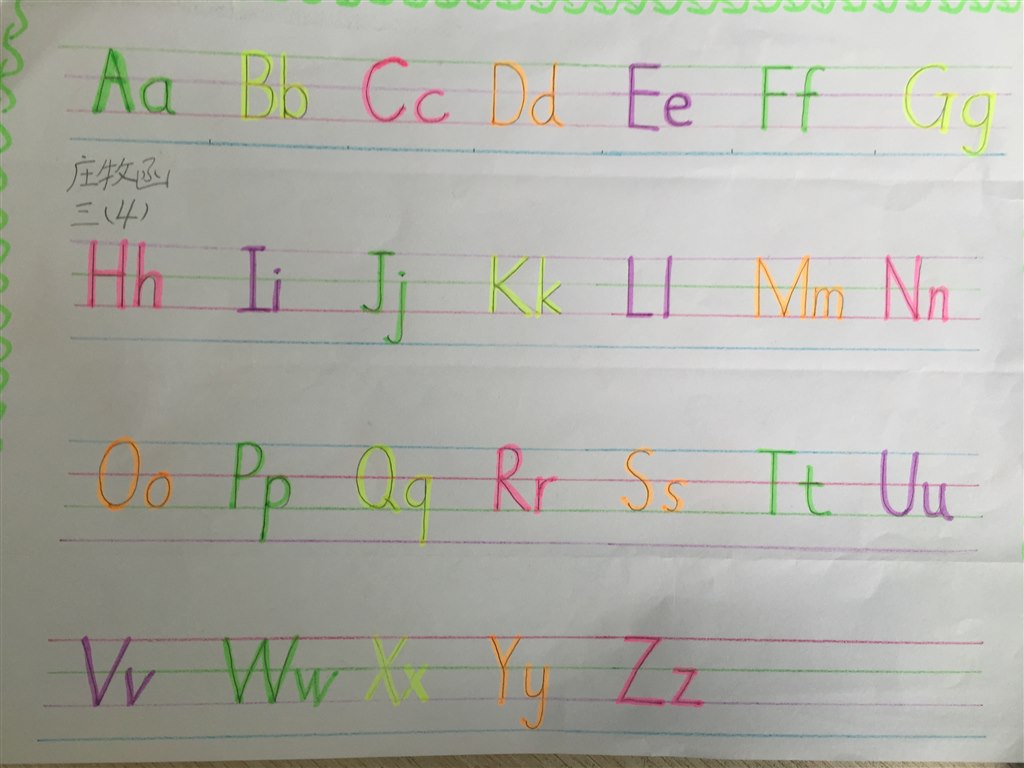 Aa Bb Cc Dd Ee Ff Gg
庄牧函
三(4)
Hh Ii Jj Kk Ll Mm Nn
Oo Pp Qq Rr Ss Tt Uu
Vv Ww Xx Yy Zz